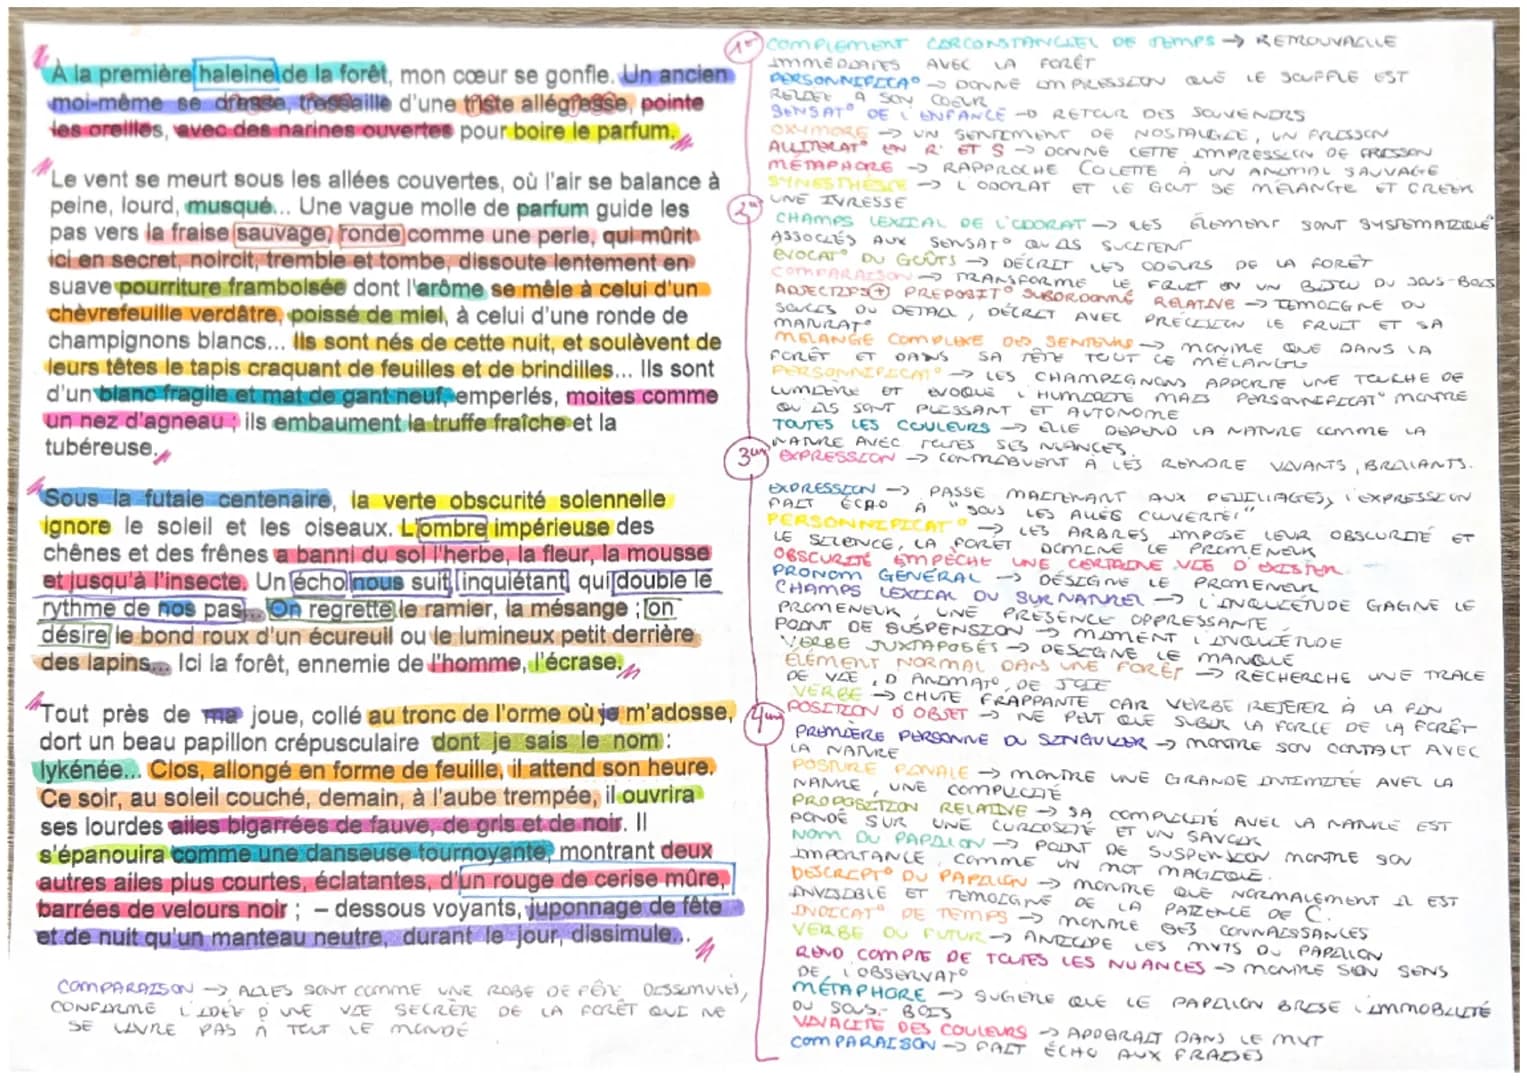 À la première haleine de la forêt, mon cœur se gonfle. Un ancien
moi-même se dresse, tressaille d'une triste allégresse, pointe
les oreilles, avec des narines ouvertes pour boire le parfum.
Le vent se meurt sous les allées couvertes, où l'air se balance à
peine, lourd, musqué... Une vague molle de parfum guide les
pas vers la fraise sauvage, ronde comme une perle, qui mûrit
ici en secret, noircit, tremble et tombe, dissoute lentement en
suave pourriture framboisée dont l'arôme se mêle à celui d'un
chèvrefeuille verdâtre, poissé de miel, à celui d'une ronde de
champignons blancs... Ils sont nés de cette nuit, et soulèvent de
leurs têtes le tapis craquant de feuilles et de brindilles... Ils sont
d'un blanc fragile et mat de gant neuf, emperlés, moites comme
un nez d'agneau ; ils embaument la truffe fraîche et la
tubéreuse.
Sous la futaie centenaire, la verte obscurité solennelle
ignore le soleil et les oiseaux. L'ombre impérieuse des
chênes et des frênes a banni du sol l'herbe, la fleur, la mousse
et jusqu'à l'insecte. Un écho nous suit, inquiétant, qui double le
rythme de nos pas... On regrette le ramier, la mésange ; on
désire le bond roux d'un écureuil ou le lumineux petit derrière
des lapins... Ici la forêt, ennemie de l'homme, l'écrase.
Tout près de ma joue, collé au tronc de l'orme où je m'adosse,
dort un beau papillon crépusculaire dont je sais le nom :
lykénée... Clos, allongé en forme de feuille, il attend son heure.
Ce soir, au soleil couché, demain, à l'aube trempée, il ouvrira
ses lourdes ailes bigarrées de fauve, de gris et de noir. Il
s'épanouira comme une danseuse tournoyante, montrant deux
autres ailes plus courtes, éclatantes, d'un rouge de cerise mûre,
barrées de velours noir ; – dessous voyants, juponnage de fête
et de nuit qu'un manteau neutre, durant le jour, dissimule...
COMPARAISON → AILES SONT COMME UNE ROBE DE FÊTE DISSIMULÉS,
CONFIRME L'IDÉE D'UNE VIE SECRÈTE DE LA FORÊT QUI NE
SE LIVRE PAS À TOUT LE MONDE
1er
COMPLEMENT CIRCONSTANCIEL DE TEMPS → RETROUVAILLE
IMMEDIATES AVEC LA FORÊT
PERSONNIFICA° → DONNE IMPRESSION QUE LE SOUFFLE EST
RELIÉE A SON COEUR
SENSAT° DE L'ENFANCE → RETOUR DES SOUVENIRS
OXYMORE → UN SENTIMENT DE NOSTALGIE, UN FRISSON
ALLITERAT° EN R ET S → DONNE CETTE IMPRESSION DE FRISSON
MÉTAPHORE → RAPPROCHE COLETTE À UN ANIMAL SAUVAGE
SYNESTHÉSIE → L'ODORAT ET LE GOUT SE MÉLANGE ET CRÉER
UNE IVRESSE
2em
CHAMPS LEXICAL DE L'ODORAT → LES ÉLEMENT SONT SYSTEMATIQUE
ASSOCIÉS AUX SENSAT° QU'ILS SUCITENT
EVOCAT° DU GOÛTS → DÉCRIT LES ODEURS DE LA FORÊT
COMPARAISON → TRANSFORME LE FRUIT EN UN BIJOU DU SOUS-BOIS
ADJECTIFS + PREPOSIT° SUBORDONNÉ RELATIVE → TEMOIGNE DU
SOUCIS DU DETAIL, DÉCRIT AVEC PRÉCISION LE FRUIT ET SA
MATURAT°
MELANGE COMPLEXE DES SENTEURS → MONTRE QUE DANS LA
FORÊT ET DANS SA TÊTE TOUT CE MÉLANGE
PERSONNIFICAT° → LES CHAMPIGNONS APPORTE UNE TOUCHE DE
LUMIÈRE ET EVOQUE L'HUMIDITÉ MAIS PERSONNIFICAT° MONTRE
QU'ILS SONT PUISSANT ET AUTONOME
TOUTES LES COULEURS → ELLE DEPEND LA NATURE COMME LA
NATURE AVEC TOUTES SES NUANCES.
3em
EXPRESSION → CONTRIBUENT À LES RENDRE VIVANTS, BRILLANTS.
EXPRESSION → PASSE MAINTENANT AUX FEUILLAGES, L'EXPRESSION
FAIT ÉCHO À "SOUS LES ALLÉS COUVERTE!"
PERSONNIFICAT° → LES ARBRES IMPOSE LEUR OBSCURITÉ ET
LE SILENCE, LA FORET DOMINE LE PROMENEUR
OBSCURITÉ EMPÊCHE UNE CERTAINE VIE D'EXISTER.
PRONOM GENÉRAL → DÉSIGNE LE PROMENEUR
CHAMPS LEXICAL DU SURNATUREL → L'INQUIETUDE GAGNE LE
PROMENEUR, UNE PRÉSENCE OPPRESSANTE
POINT DE SUSPENSION → MOMENT L'INQUIÉTUDE
VERBE JUXTAPOSÉS → DESIGNE LE MANQUE
ÉLÉMENT NORMAL DANS UNE FORÊT → RECHERCHE UNE TRACE
DE VIE, D'ANIMAT°, DE JOIE
VERBE → CHUTE FRAPPANTE CAR VERBE REJETER À LA FIN
4em
POSITION D'OBJET → NE PEUT QUE SUBIR LA FORCE DE LA FORÊT
PREMIÈRE PERSONNE DU SINGULIER → MONTRE SON CONTACT AVEC
LA NATURE
POSTURE FINALE → MONTRE UNE GRANDE INTIMITÉE AVEC LA
NATURE, UNE COMPLICITÉ
PROPOSITION RELATIVE → SA COMPLICITÉ AVEC LA NATURE EST
FONDÉ SUR UNE CURIOSITÉ ET UN SAVOIR
NOM DU PAPILLON → POINT DE SUSPENSION MONTRE SON
IMPORTANCE, COMME UN MOT MAGIQUE.
DESCRIPT° DU PAPILLON → MONTRE QUE NORMALEMENT IL EST
INVISIBLE ET TEMOIGNE DE LA PATIENCE DE C.
INDICAT° DE TEMPS → MONTRE SES CONNAISSANCES
VERBE DU FUTUR → ANTICIPE LES MVTS DU PAPILLON
REND COMPTE DE TOUTES LES NUANCES → MONTRE SON SENS
DE L'OBSERVAT°
MÉTAPHORE → SUGÈRE QUE LE PAPILLON BRISE L'IMMOBILITÉ
DU SOUS-BOIS
VIVACITÉ DES COULEURS → APPARAIT DANS LE MVT
COMPARAISON → FAIT ÉCHO AUX FRAISES